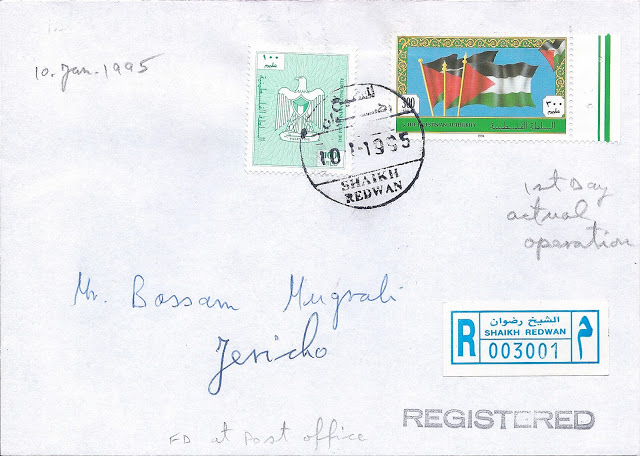 10. Jan. 1995
١٠٠
٣٠٠
300
السلطة الفلسطينية
10-1-1995
SHAIKH
REDWAN
1st Day
actual
operation
Mr. Bassam Mugrabi
Jericho
R
الشيخ رضوان
SHAIKH REDWAN
003001
م
REGISTERED
FD at Post office